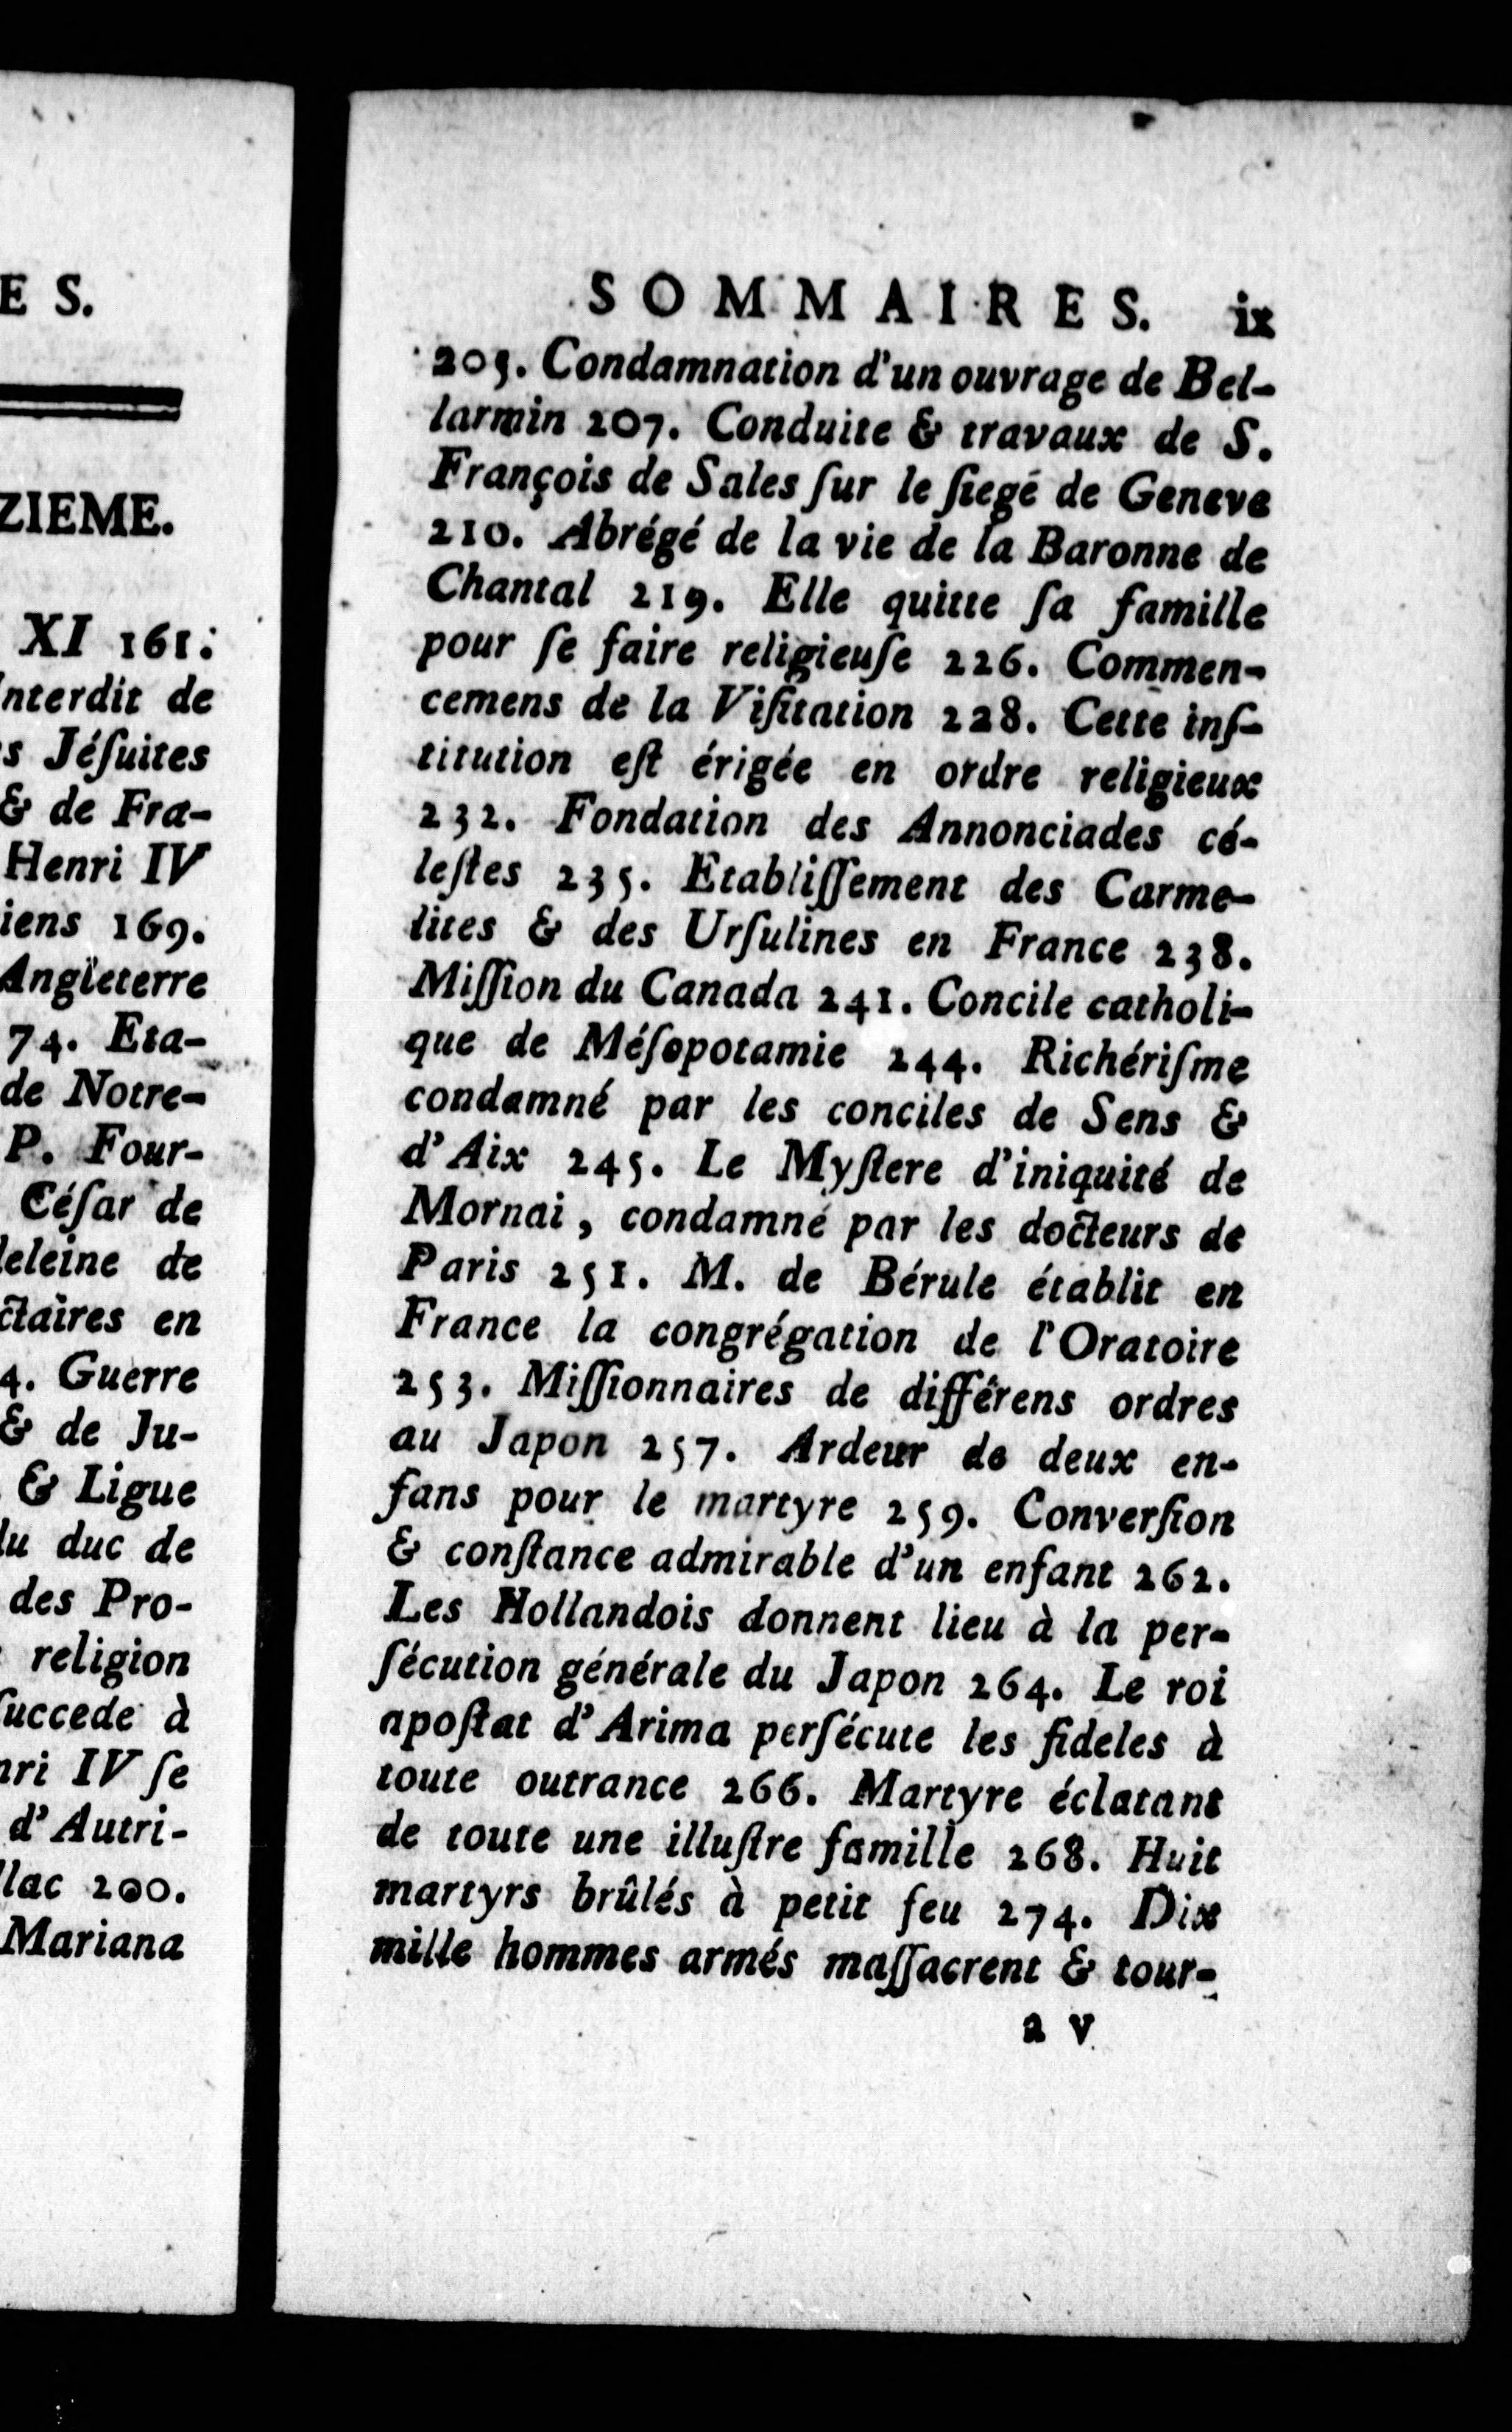 E S.
ZIEME.
XI 161.
nterdit de
s Jéſuites
& de Fra-
Henri IV
iens 169.
Angleterre
74. Eta-
de Notre-
P. Four-
Céſar de
leleine de
ctaires en
4. Guerre
& de Ju-
& Ligue
du duc de
des Pro-
religion
ſuccede à
nri IV ſe
d'Autri-
llac 200.
Mariana
SOMMAIRES. ix
205. Condamnation d'un ouvrage de Bel-
larmin 207. Conduite & travaux de S.
François de Sales ſur le ſiege de Geneve
210. Abrégé de la vie de la Baronne de
Chantal 219. Elle quitte ſa famille
pour ſe faire religieuſe 226. Commen-
cemens de la Viſitation 228. Cette inſ-
titution eſt érigée en ordre religieux
232. Fondation des Annonciades cé-
leſtes 235. Etabliſſement des Carme-
lites & des Urſulines en France 238.
Miſſion du Canada 241. Concile catholi-
que de Méſopotamie 244. Richériſme
condamné par les conciles de Sens &
d'Aix 245. Le Myſtere d'iniquité de
Mornai, condamné par les docteurs de
Paris 251. M. de Bérule établit en
France la congrégation de l'Oratoire
253. Miſſionnaires de différens ordres
au Japon 257. Ardeur de deux en-
fans pour le martyre 259. Converſion
& conſtance admirable d'un enfant 262.
Les Hollandois donnent lieu à la per-
ſécution générale du Japon 264. Le roi
apoſtat d'Arima perſécute les fideles à
toute outrance 266. Martyre éclatant
de toute une illuſtre famille 268. Huit
martyrs brûlés à petit feu 274. Dix
mille hommes armés maſſacrent & tour-
a v